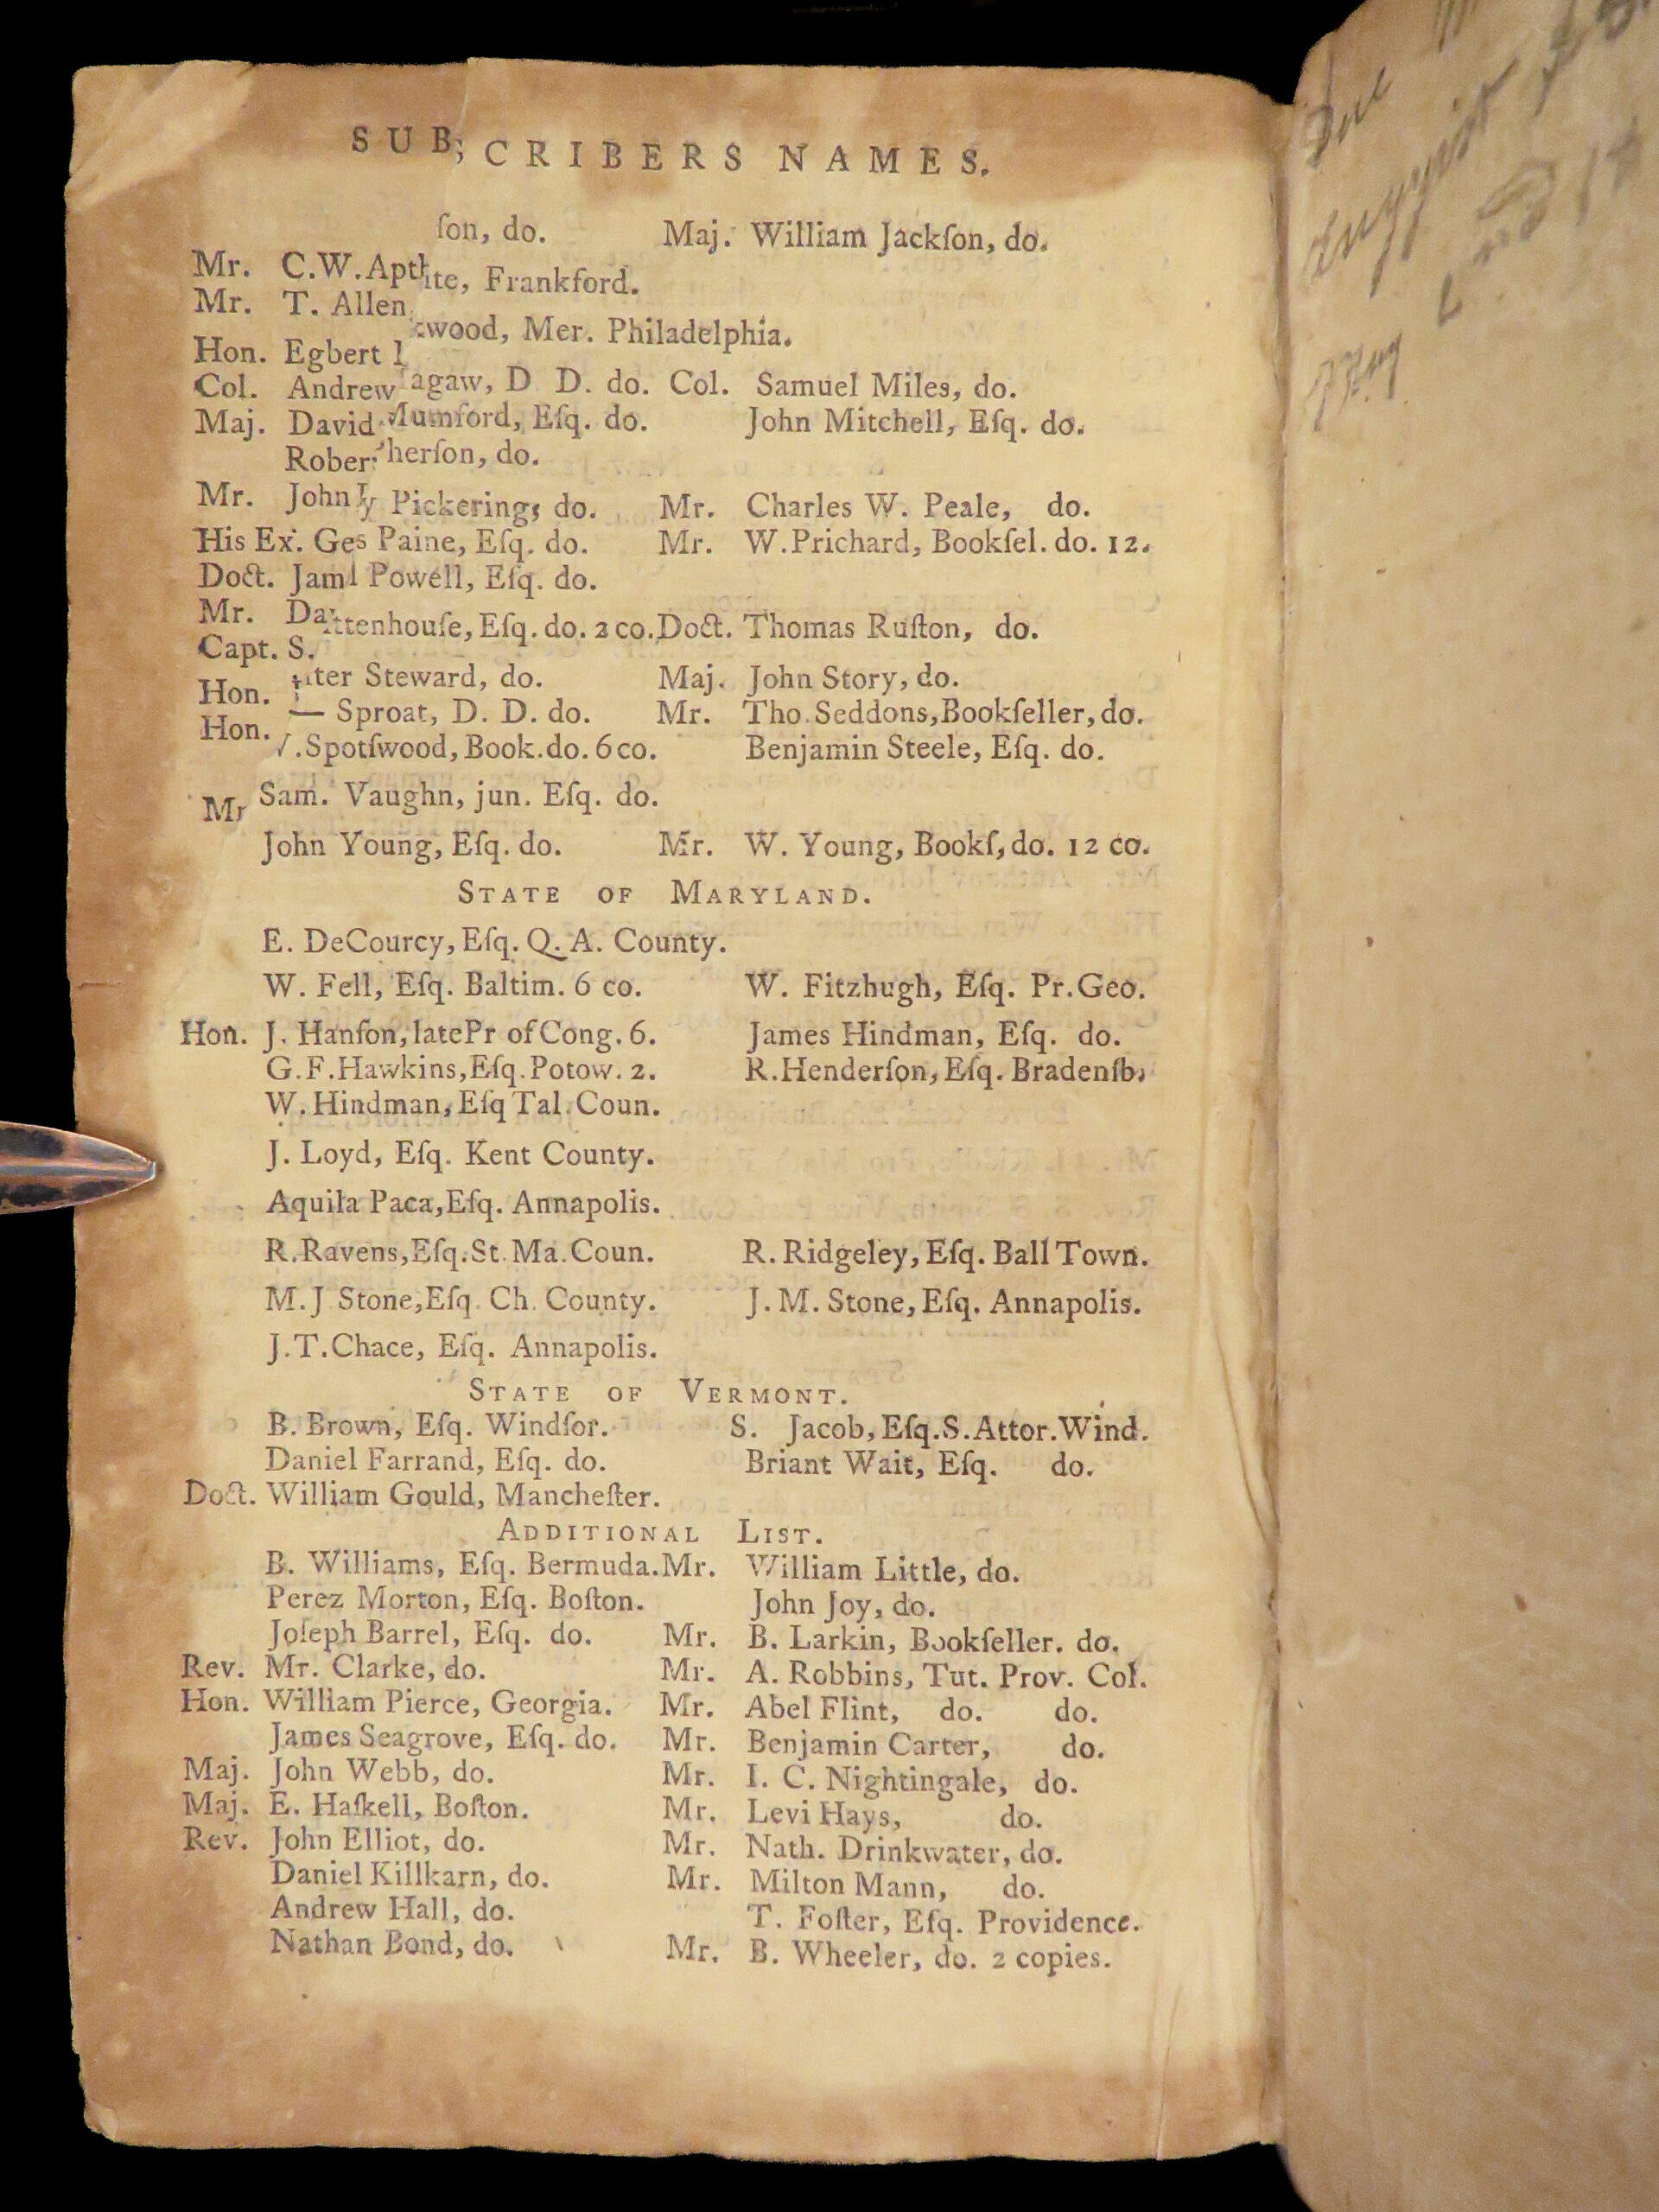 SUB; CRIBERS NAMES.
ſon, do. Maj. William Jackſon, do.
Mr. C.W.Apth
ite, Frankford.
Mr. T. Allen
kwood, Mer. Philadelphia.
Hon. Egbert
Col. Andrew agaw, D D. do. Col. Samuel Miles, do.
Maj. David Mumford, Eſq. do. John Mitchell, Eſq. do.
Rober herſon, do.
Mr. John y Pickering, do. Mr. Charles W. Peale, do.
His Ex. Ge s Paine, Eſq. do. Mr. W.Prichard, Bookſel. do. 12.
Doct. Jam l Powell, Eſq. do.
Mr. Da
ttenhouſe, Eſq. do. 2 co. Doct. Thomas Ruſton, do.
Capt. S.
ter Steward, do. Maj. John Story, do.
Hon.
— Sproat, D. D. do. Mr. Tho. Seddons, Bookſeller, do.
Hon.
.Spotſwood, Book. do. 6 co. Benjamin Steele, Eſq. do.
Mr Sam. Vaughn, jun. Eſq. do.
John Young, Eſq. do. Mr. W. Young, Bookſ, do. 12 co.
STATE OF MARYLAND.
E. DeCourcy, Eſq. Q. A. County.
W. Fell, Eſq. Baltim. 6 co. W. Fitzhugh, Eſq. Pr. Geo.
Hon. J. Hanſon, late Pr of Cong. 6. James Hindman, Eſq. do.
G.F.Hawkins, Eſq. Potow. 2. R.Henderſon, Eſq. Bradenſb.
W. Hindman, Eſq Tal. Coun.
J. Loyd, Eſq. Kent County.
Aquila Paca, Eſq. Annapolis.
R. Ravens, Eſq. St. Ma. Coun. R. Ridgeley, Eſq. Ball Town.
M. J Stone, Eſq. Ch. County. J. M. Stone, Eſq. Annapolis.
J.T.Chace, Eſq. Annapolis.
STATE OF VERMONT.
B. Brown, Eſq. Windſor. S. Jacob, Eſq. S. Attor. Wind.
Daniel Farrand, Eſq. do. Briant Wait, Eſq. do.
Doct. William Gould, Mancheſter.
ADDITIONAL LIST.
B. Williams, Eſq. Bermuda. Mr. William Little, do.
Perez Morton, Eſq. Boſton. John Joy, do.
Joſeph Barrel, Eſq. do. Mr. B. Larkin, Bookſeller. do.
Rev. Mr. Clarke, do. Mr. A. Robbins, Tut. Prov. Col.
Hon. William Pierce, Georgia. Mr. Abel Flint, do. do.
James Seagrove, Eſq. do. Mr. Benjamin Carter, do.
Maj. John Webb, do. Mr. I. C. Nightingale, do.
Maj. E. Haſkell, Boſton. Mr. Levi Hays, do.
Rev. John Elliot, do. Mr. Nath. Drinkwater, do.
Daniel Killkarn, do. Mr. Milton Mann, do.
Andrew Hall, do. T. Foſter, Eſq. Providence.
Nathan Bond, do. Mr. B. Wheeler, do. 2 copies.